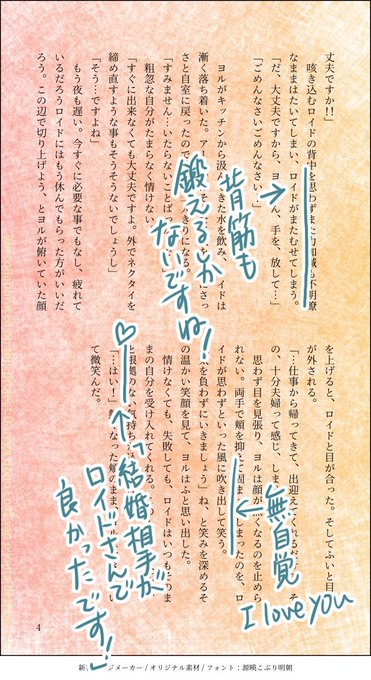 丈夫ですか!!」
咳き込むロイドの背中を思わずまた力加減も不明瞭
なままはたいてしまい、ロイドがまたむせてしまう。
「だ、大丈夫ですから、ヨ さん、手を、放して…」
「ごめんなさいごめんなさい
ヨルがキッチンから汲 きた水を飲み、 イドは
漸く落ち着いた。ア さっ
さと自室に戻ったので きりになる。
「すみません…いたらないことば
粗忽な自分がたまらなく情けない
「すぐに出来なくても大丈夫ですよ。外でネクタイを
締め直すような事もそうそうないでしょうし」
「そう…ですよね」
もう夜も遅い。今すぐに必要な事でもなし、疲れて
いるだろうロイドにはもう休んでもらった方がいいだ
ろう。この辺で切り上げよう、とヨルが俯いていた顔
背筋も
鍛えるとか
ないですね!
を上げると、ロイドと目が合った。そしてふいと目
が外される。
「…仕事から帰ってきて、出迎えてくれるだ そ
の、十分夫婦って感じ、しま
思わず目を見張り、ヨルは顔が くなるのを止めら
れない。両手で頬を抑えて固ま しまったのを、ロ
イドが思わずといった風に吹き出して笑う。
を負わずにいきましょう」ね、と笑みを深めるそ
の温かい笑顔を見て、ヨルはふと思い出した。
情けなくても、失敗しても、ロイドはいつもそのま
まの自分を受け入れてくれる。
と根拠のない気持ち
「…はい!」 なった頬のまま、
て微笑んだ。
無自覚
I love you
♡
「結婚相手が
ロイドさんで
良かったです!」
4
新 ジメーカー/オリジナル素材/フォント:源暎こぶり明朝